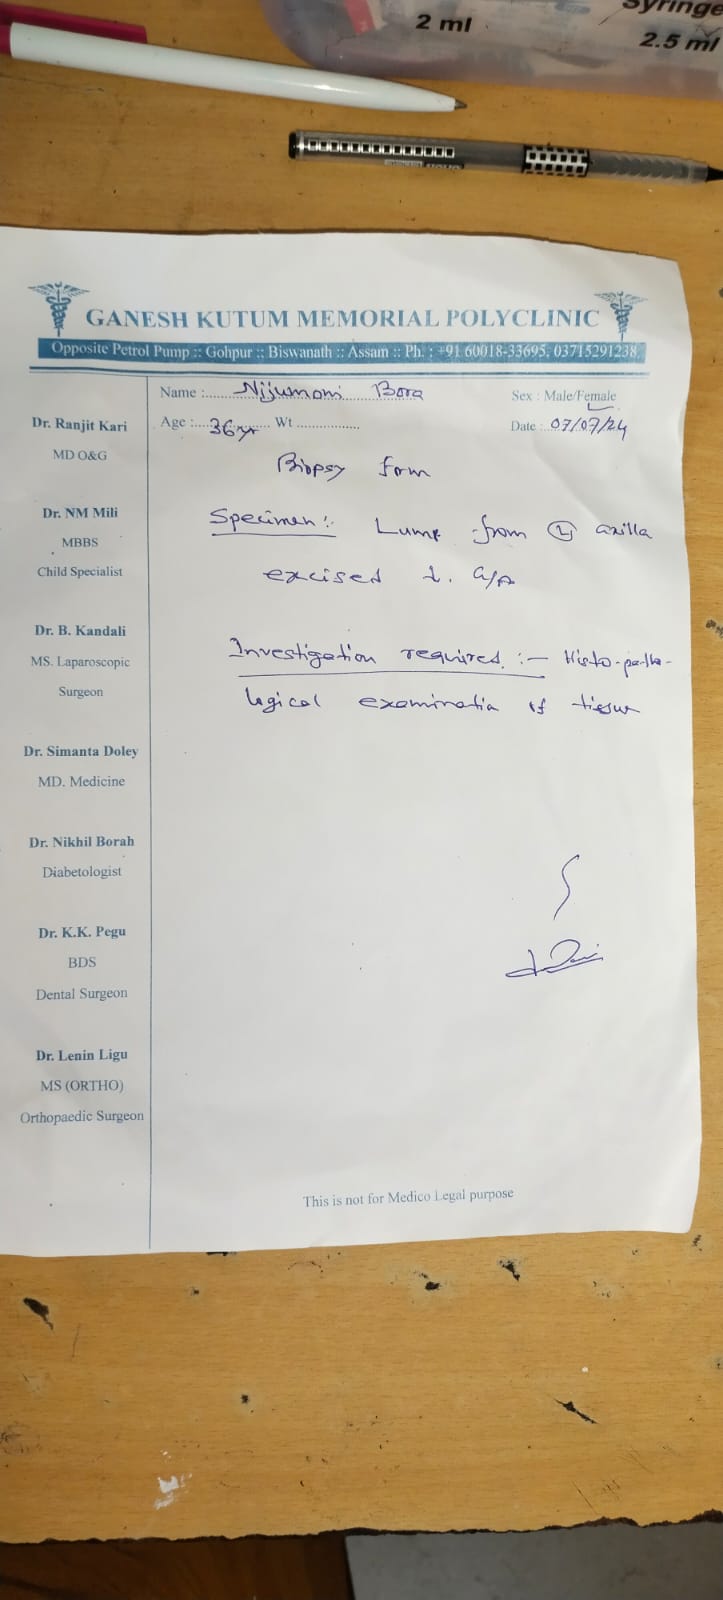 2 ml
Syringe
2.5 ml
GANESH KUTUM MEMORIAL POLYCLINIC
Opposite Petrol Pump :: Gohpur :: Biswanath :: Assam :: Ph. : +91 60018-33695, 03715291238
Name :........Nijumoni Bora
Sex : Male/Female
Age :....36yr Wt ..................
Date : 07/07/24
Dr. Ranjit Kari
MD O&G
Dr. NM Mili
MBBS
Child Specialist
Dr. B. Kandali
MS. Laparoscopic
Surgeon
Dr. Simanta Doley
MD. Medicine
Dr. Nikhil Borah
Diabetologist
Dr. K.K. Pegu
BDS
Dental Surgeon
Dr. Lenin Ligu
MS (ORTHO)
Orthopaedic Surgeon
Biopsy form
Specimen :- Lump from axilla
excised
Investigation required :- Histo-patho-
logical examination of tissue
This is not for Medico Legal purpose